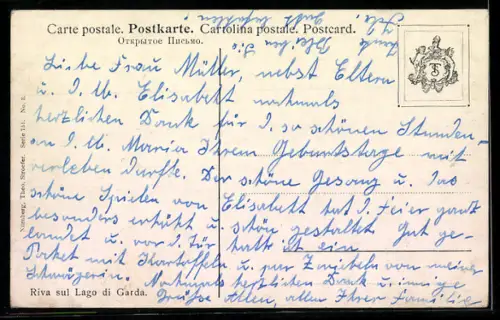 Carte postale. Postkarte. Cartolina postale. Postcard.
Открытое Письмо.
Liebe Frau Müller, nebst Eltern
u. I. lb. Elisabeth nochmals
herzlichen Dank für I. so schönen Stunden
an I. lb. Maria Ihrem Geburtstage mit
verleben durfte. Der schöne Gesang u. das
schöne Spielen von Elisabeth hat I. Feier ganz
besonders erhöht u. schön gestaltet. Gut ge-
landet u. vor I. Tür hatte ich ein
Paket mit Kartoffeln u. paar Zwiebeln von meiner
Schwägerin. Nochmals herzlichen Dank u. innige
Grüße Allen, allen Ihrer Familie
Nürnberg, Theo. Stroefer. Serie 151. No. 5.
TS
Riva sul Lago di Garda.